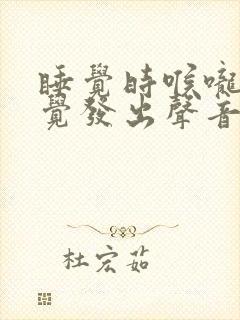 睡覺時喉嚨
覺發出聲音
杜宏茹